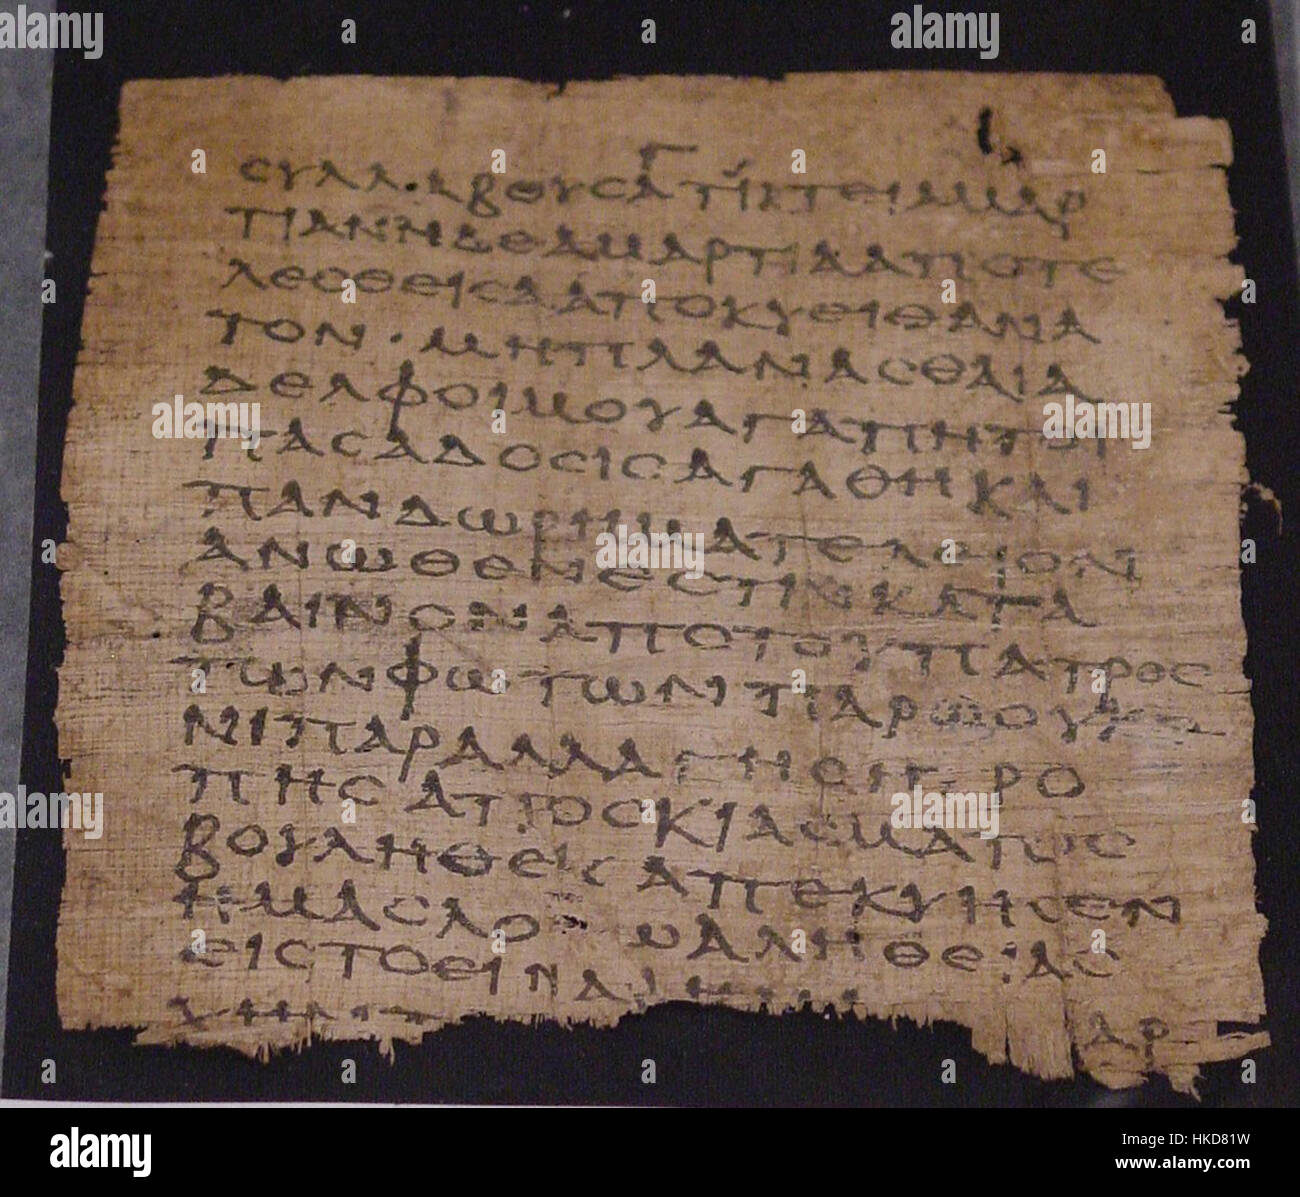 Γ
ϹΥΛΛΑΒΟΥϹΑΤΙΚΤΕΙΑΜΑΡ
ΤΙΑΝΗΔΕΑΜΑΡΤΙΑΑΠΟΤΕ
ΛΕϹΘΕΙϹΑΑΠΟΚΥΕΙΘΑΝΑ
ΤΟΝ·ΜΗΠΛΑΝΑϹΘΑΙΑ
ΔΕΛΦΟΙΜΟΥΑΓΑΠΗΤΟΙ
ΠΑϹΑΔΟϹΙϹΑΓΑΘΗΚΑΙ
ΠΑΝΔΩΡΗΜΑΤΕΛΕΙΟΝ
ΑΝΩΘΕΝΕϹΤΙΝΚΑΤΑ
ΒΑΙΝΟΝΑΠΟΤΟΥΠΑΤΡΟϹ
ΤΩΝΦΩΤΩΝΠΑΡΩΟΥΚΕ
ΝΙΠΑΡΑΛΛΑΓΗϹΗΤΡΟ
ΠΗϹΑΠΟϹΚΙΑϹΜΑΤΟϹ
ΒΟΥΛΗΘΕΙϹΑΠΕΚΥΗϹΕΝ
ΗΜΑϹΛΟΓΩΑΛΗΘΕΙΑϹ
ΕΙϹΤΟΕΙΝΑΙ
ΑΡ
alamy
Image ID: HKD81W
www.alamy.com